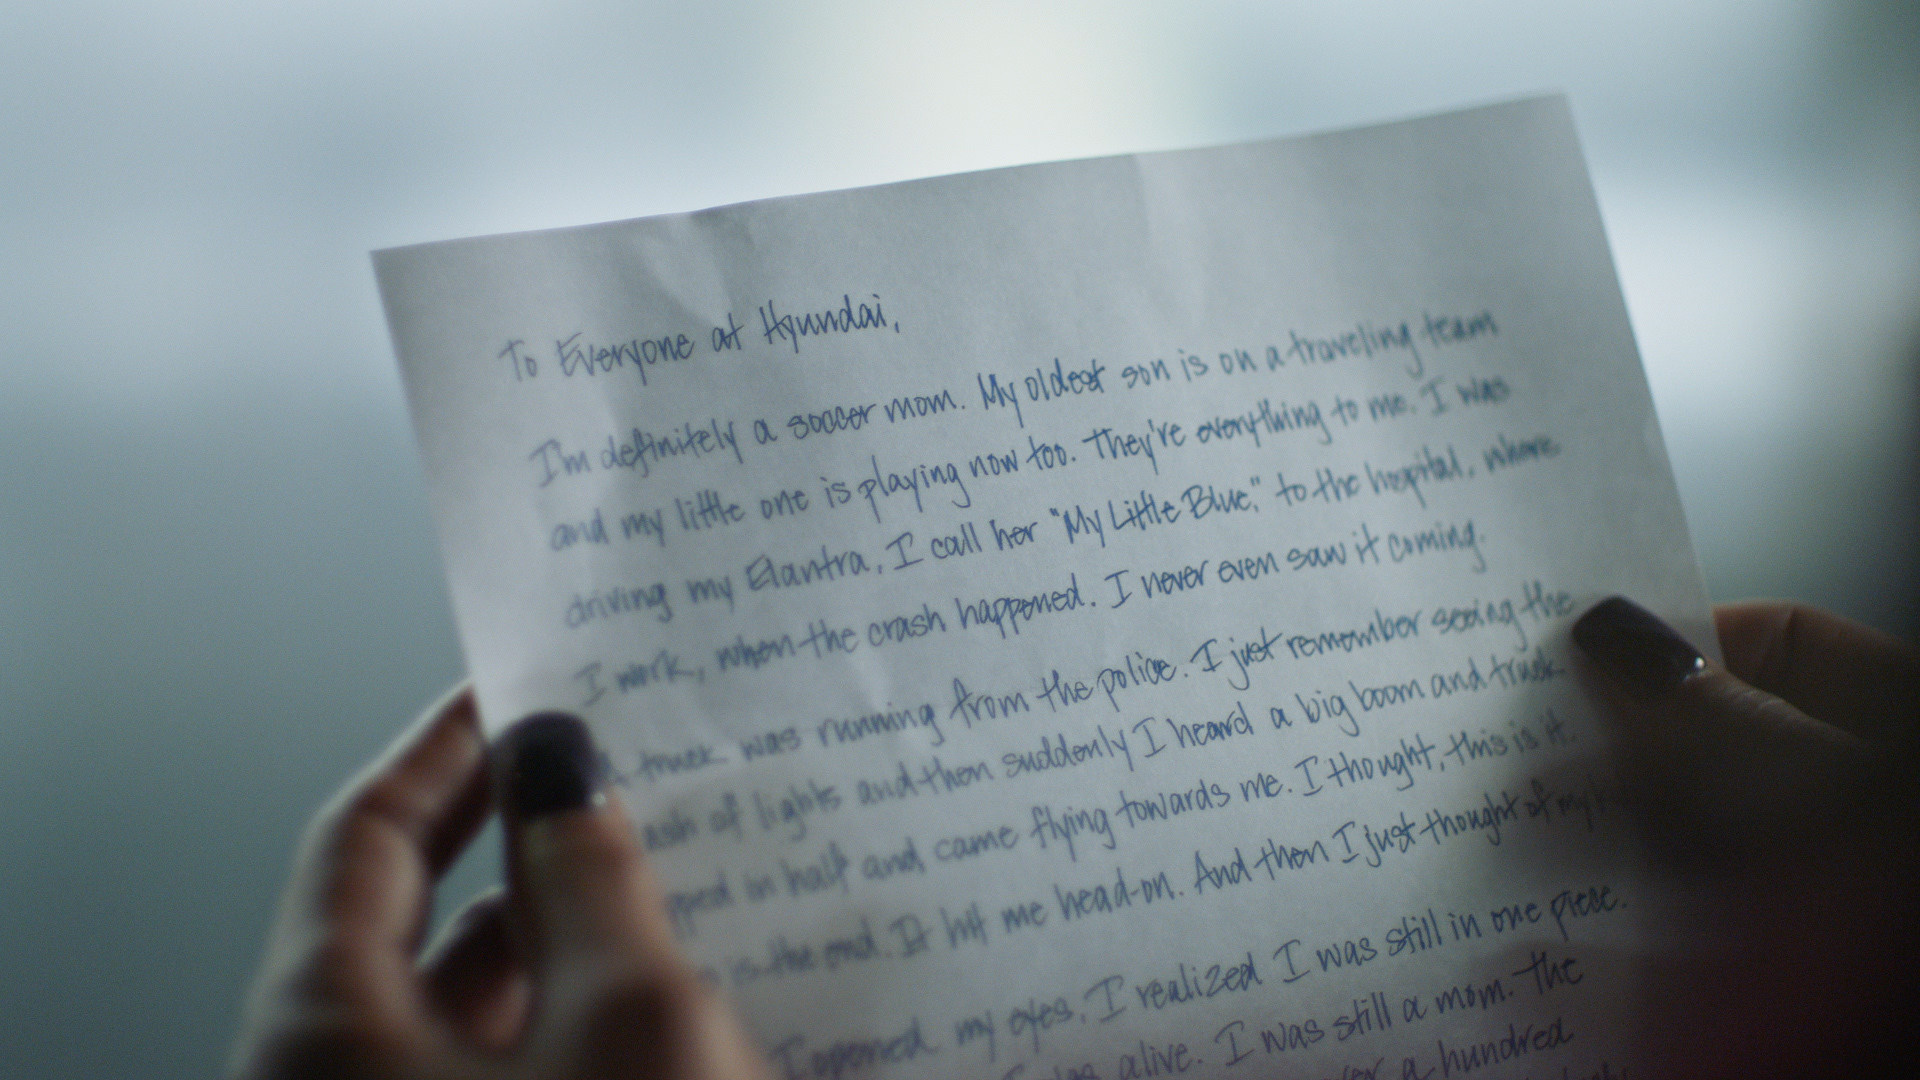 To Everyone at Hyundai,
I'm definitely a soccer mom. My oldest son is on a traveling team
and my little one is playing now too. They're everything to me. I was
driving my Elantra, I call her "My Little Blue," to the hospital, where
I work, when the crash happened. I never even saw it coming.
truck was running from the police. I just remember seeing the
of lights and then suddenly I heard a big boom and truck
in half and came flying towards me. I thought, this is it.
is the end. It hit me head-on. And then I just thought of my
I opened my eyes, I realized I was still in one piece.
alive. I was still a mom. The
a hundred